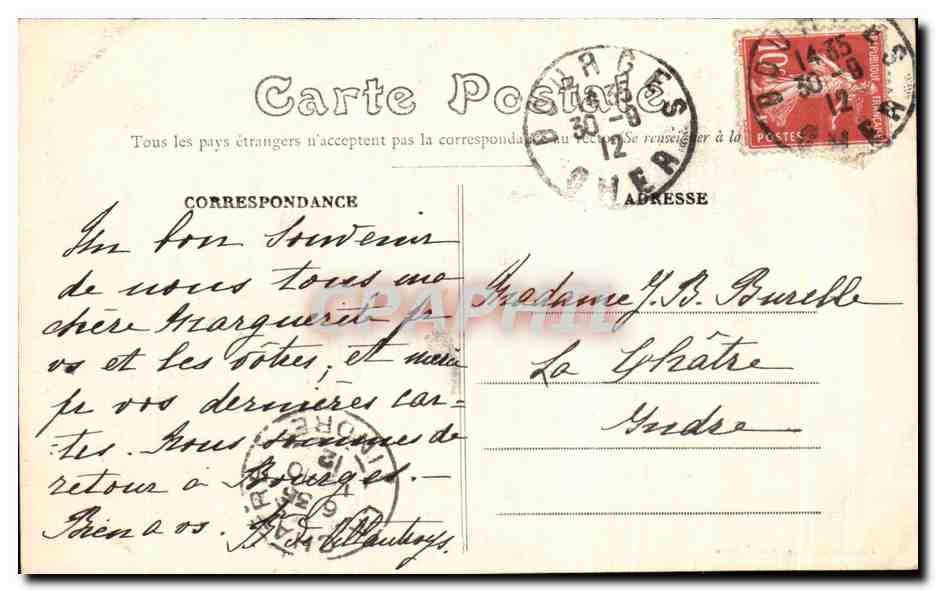 Carte Postale
Tous les pays étrangers n'acceptent pas la correspondance au recto (Se renseigner à la
CORRESPONDANCE
Un bon souvenir
de nous tous ma
chère Marguerite pr
vs et les vôtres, et merci
pr vos dernières car-
tes. Nous sommes de
retour à Bourges.-
Bien a vs.
ADRESSE
Madame J. B. Burelle
La Châtre
Indre
BOURGES
14 35
30 -9
12
CHER
10
REPUBLIQUE FRANÇAISE
POSTES
BOURGES
14 35
30 -9
12
CHER
LA CHATRE
INDRE
6 35
1 - 10
12
CPAPHIL